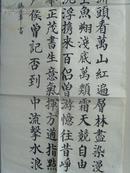 洲頭看萬山紅遍層林盡染漫
上魚翔淺底萬類霜天競自由
沉浮携來百侶曾游憶往昔崢
正茂書生意氣揮斥方遒指
戶侯曾記否到中流擊水浪
書